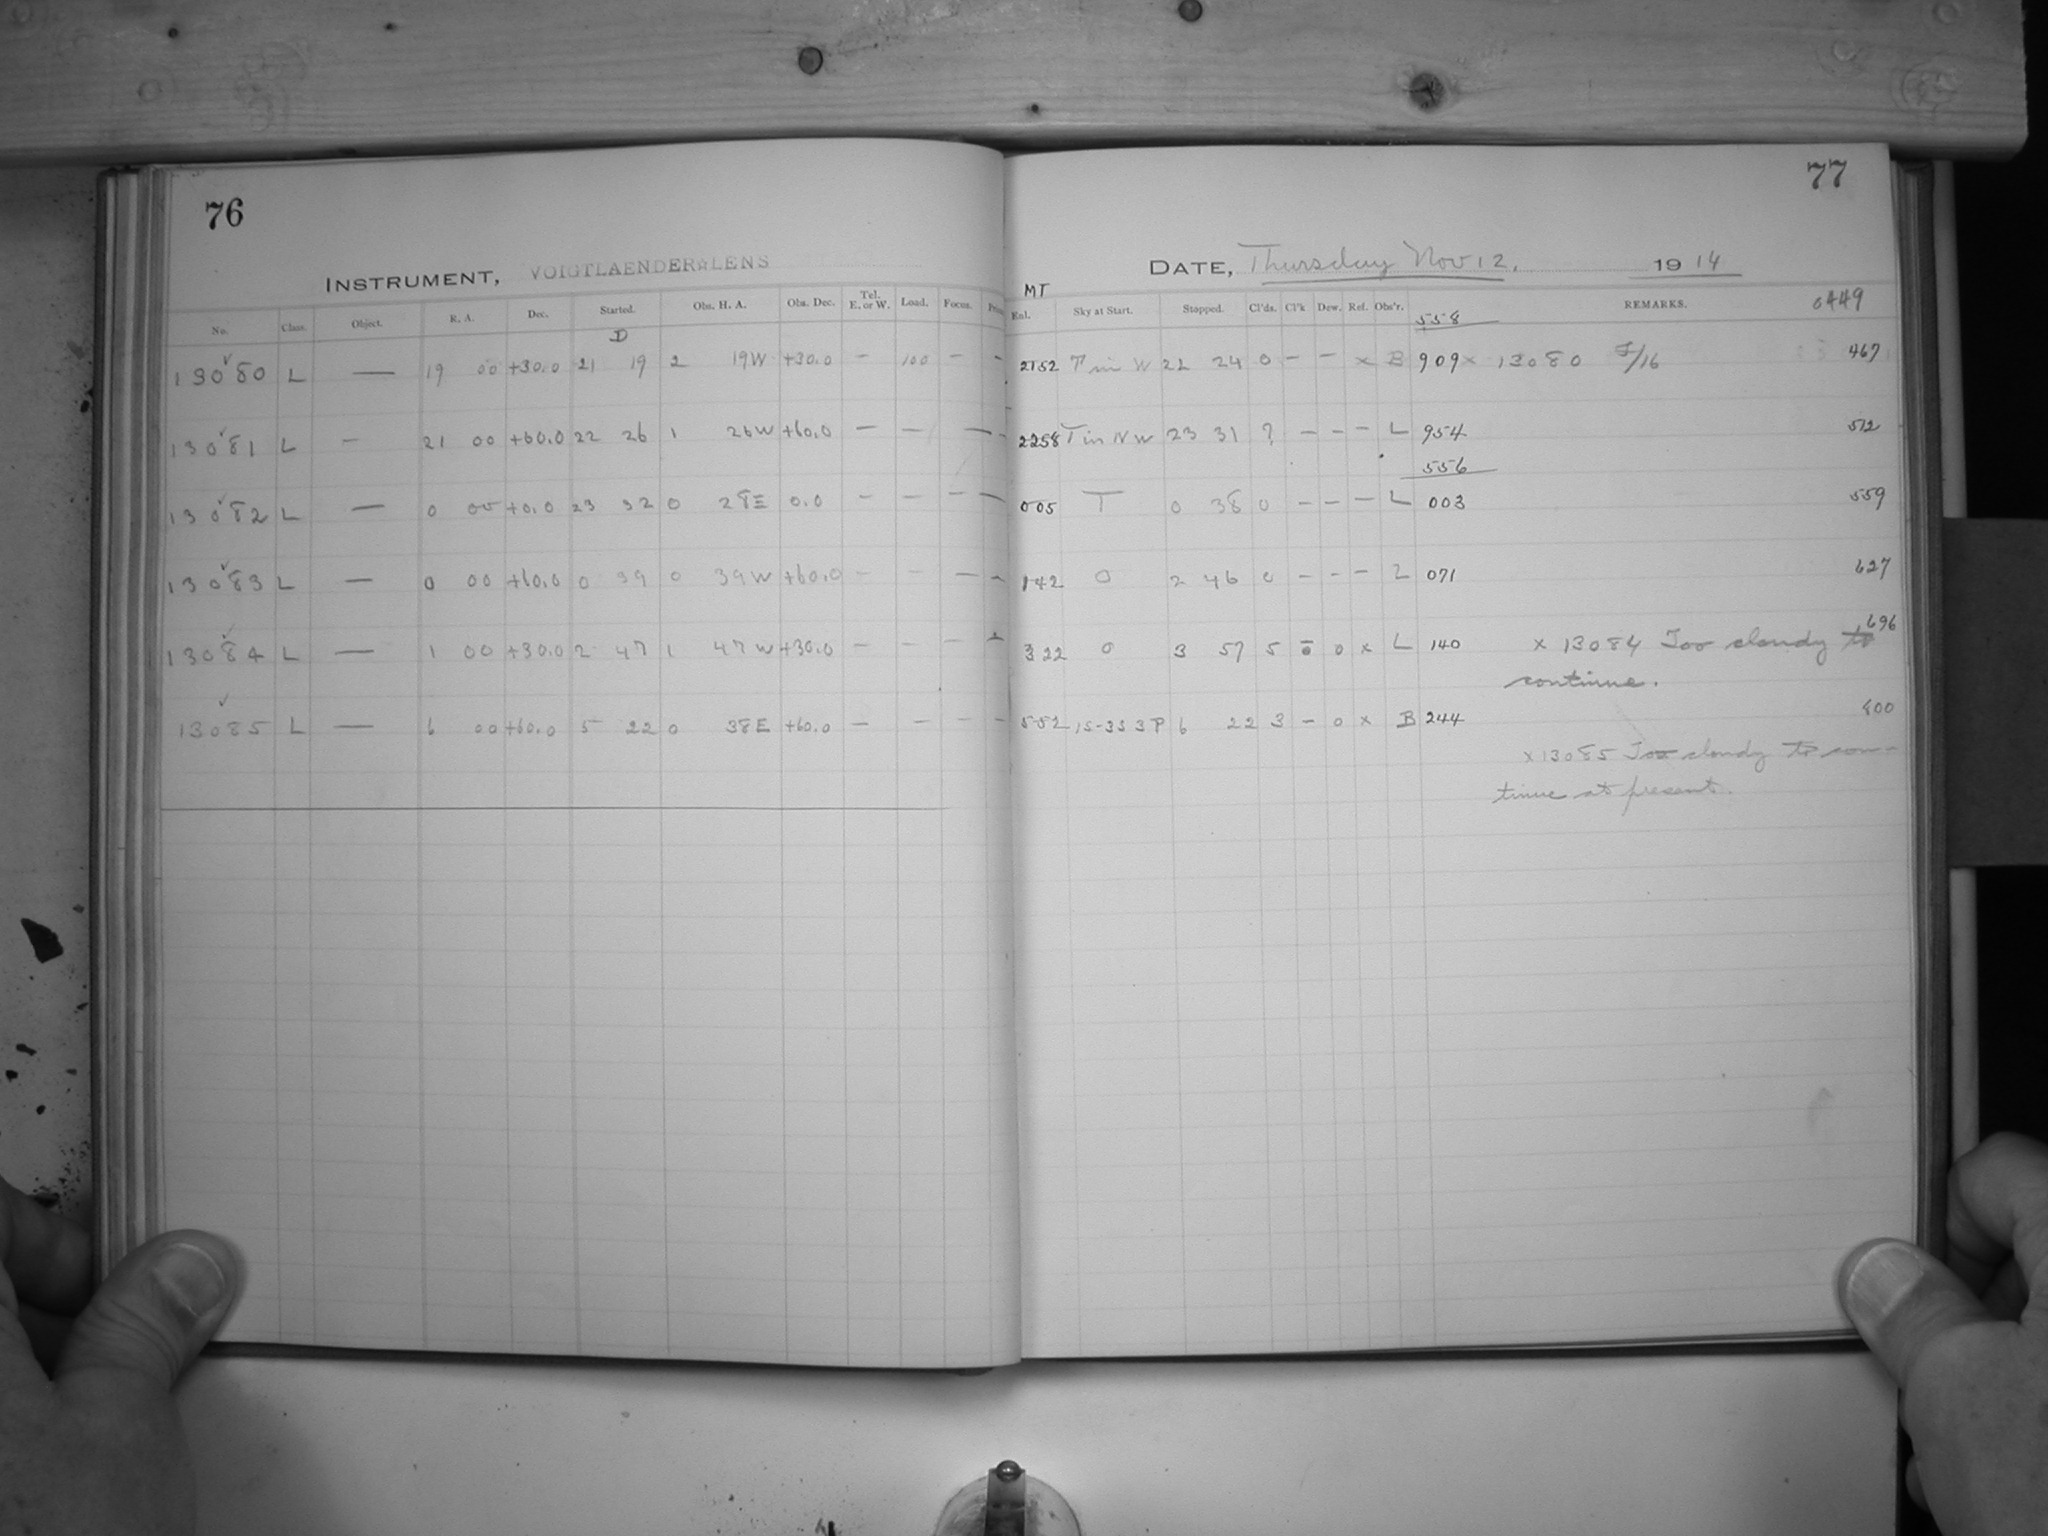 76
INSTRUMENT, VOIGTLAENDER LENS
No. Class. Object. R. A. Dec. Started. Obs. H. A. Obs. Dec. Tel. E. or W. Load. Focus.
D
13080 L — 19 00 +30.0 21 19 2 19W +30.0 — 100 — —
13081 L — 21 00 +60.0 22 26 1 26W +60.0 — — — —
13082 L — 0 05 +0.0 23 32 0 28E 0.0 — — — —
13083 L — 0 00 +60.0 0 39 0 39W +60.0 — — — —
13084 L — 1 00 +30.0 2 47 1 47W +30.0 — — —
13085 L — 6 00 +60.0 5 22 0 38E +60.0 — — — —
77
DATE, Thursday Nov 12, 1914
MT
Enl. Sky at Start. Stopped. Cl'ds. Cl'k Dew. Ref. Obs'r. REMARKS. 0449
558
2152 T in W 22 24 0 — — x B 909 x 13080 F/16 467
2258 T in NW 23 31 ? — — — L 954 512
556
005 T 0 38 0 — — — L 003 559
142 0 2 46 0 — — — L 071 627
322 0 3 57 5 0 x L 140 x 13084 Too cloudy to 696
continue.
552 15-33 3P 6 22 3 — 0 x B 244 800
x 13085 Too cloudy to con-
tinue at present.